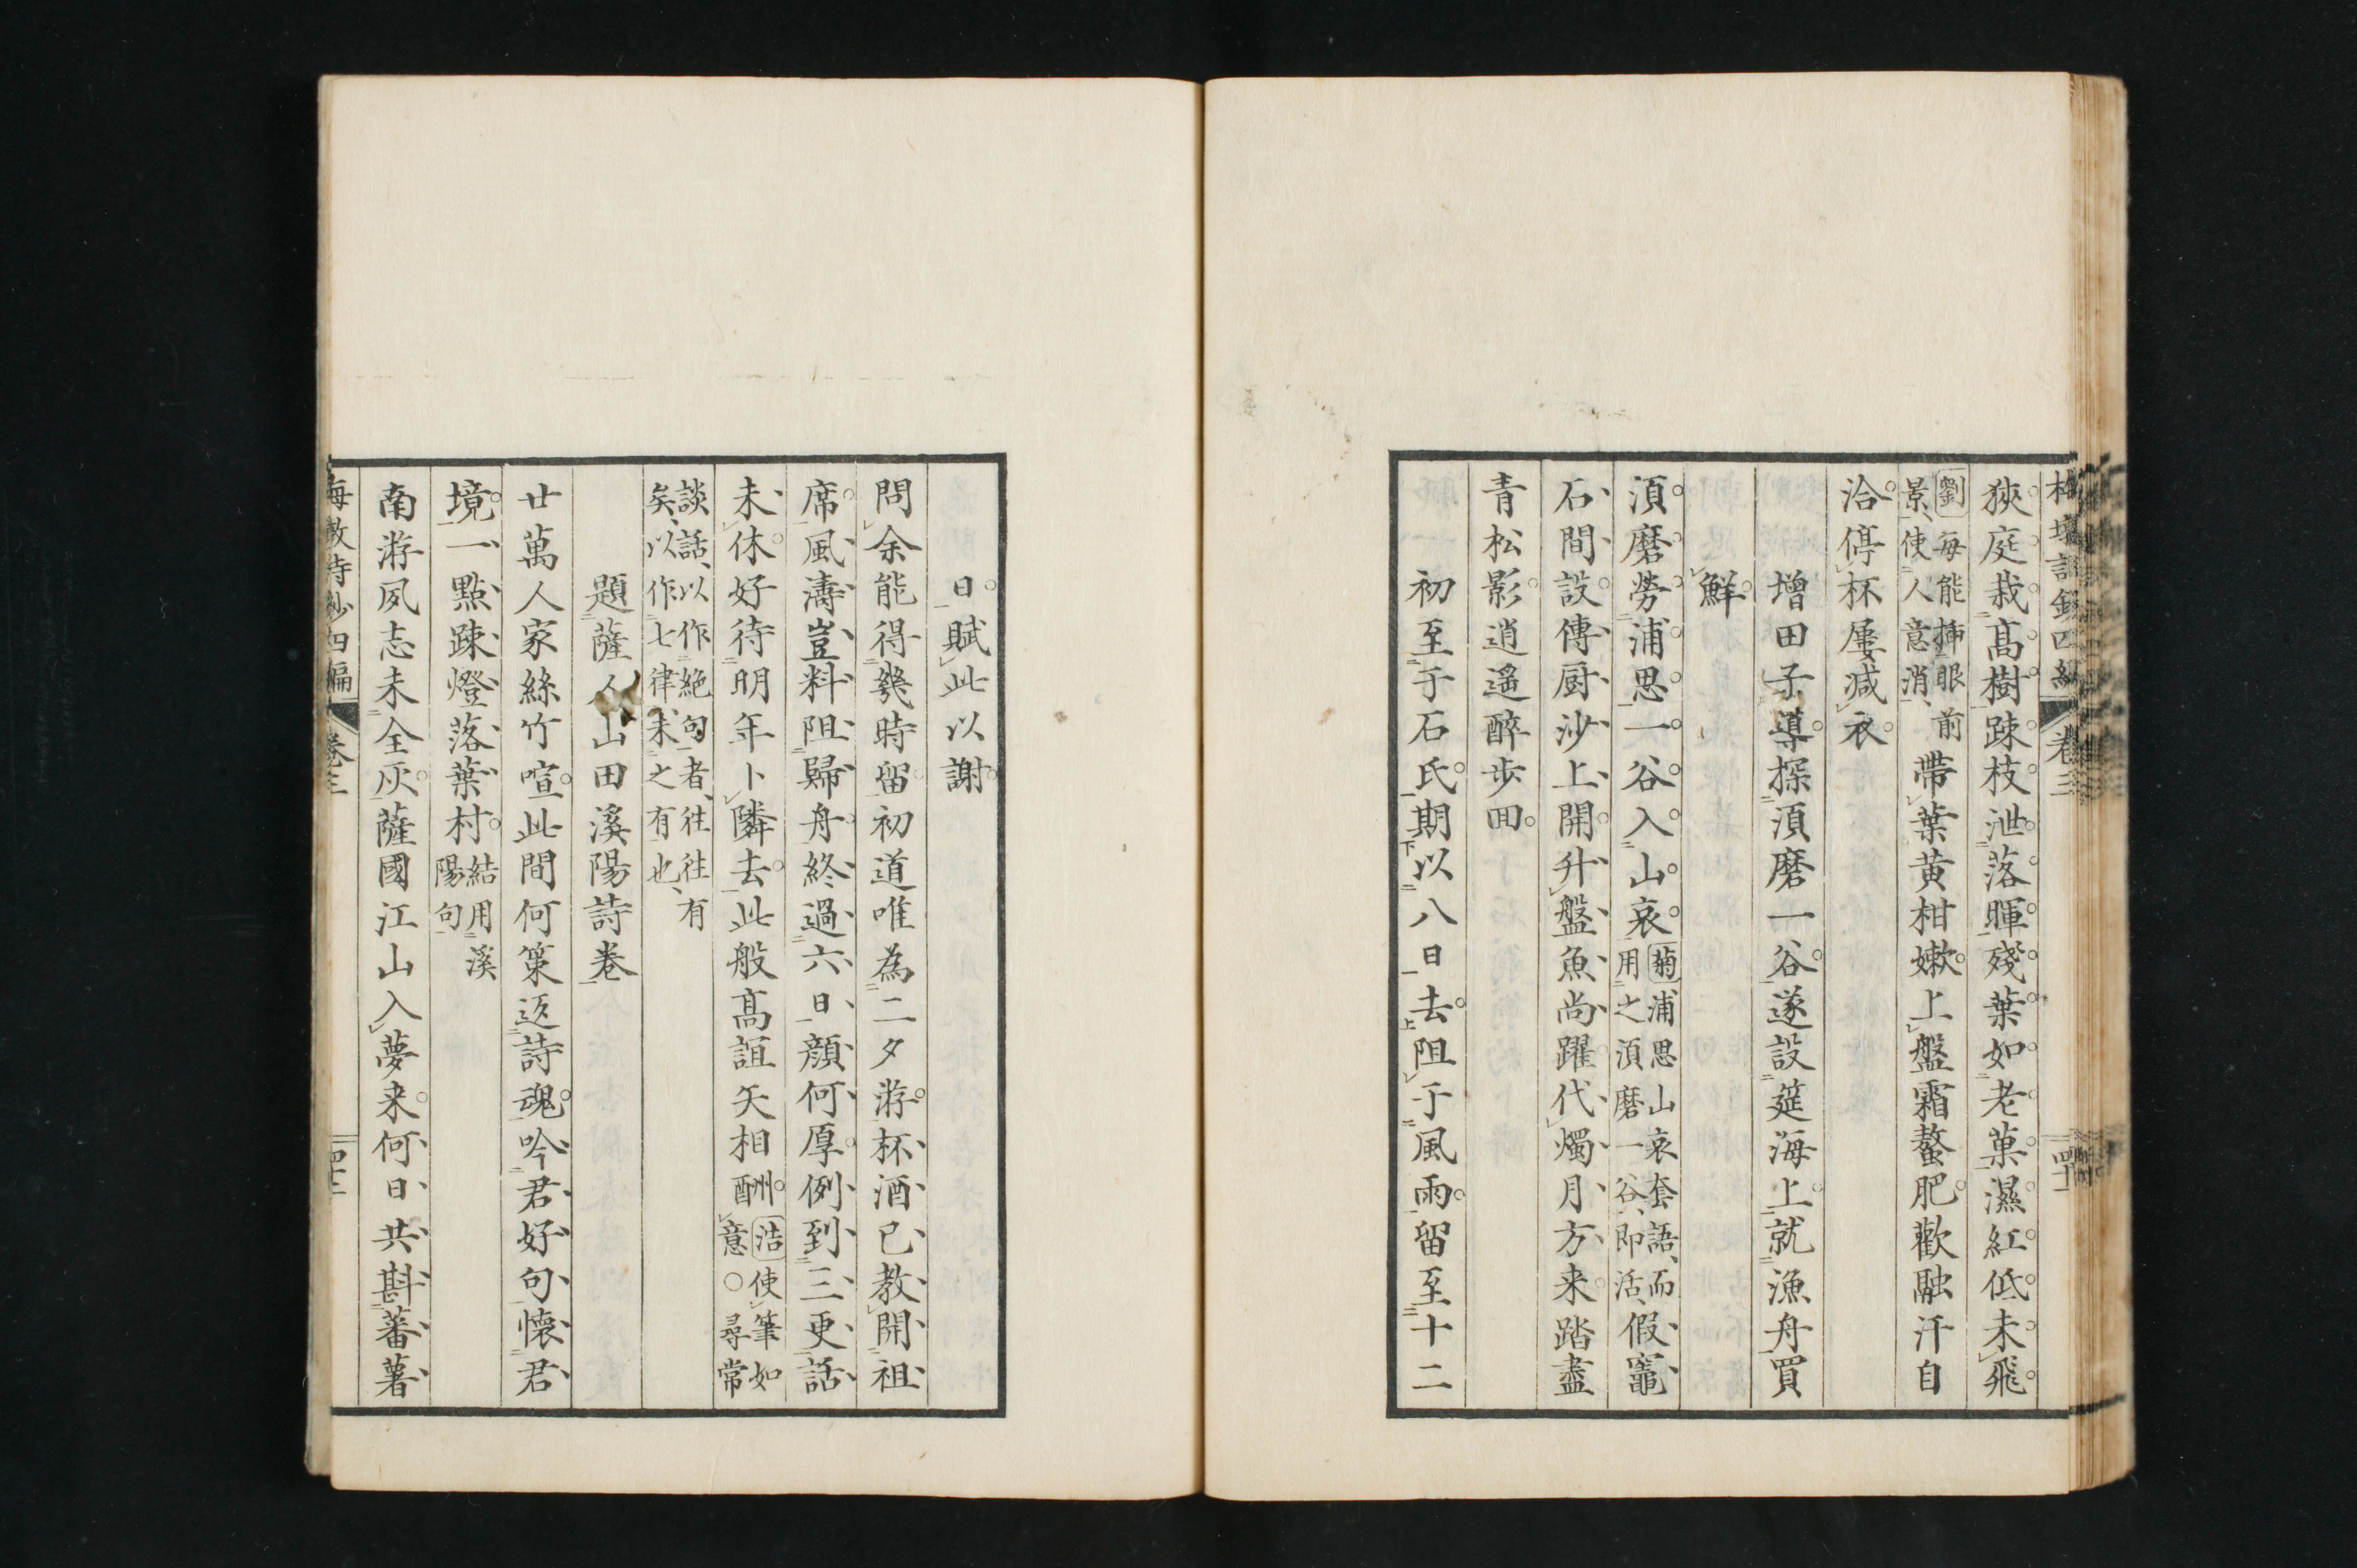 狹庭栽高樹踈枝泄落暉殘葉如老菓濕紅低未飛
劉每能揷眼前
景使人意消
帶葉黃柑嫩上盤霜螯肥歡融汗自
洽停杯屢減衣
增田子導探湏磨一谷遂設筵海上就漁舟買
鮮
湏磨勞浦思一谷入山哀
菊浦思山哀套語而
用之湏磨一谷即活
假竈
石間設傳厨沙上開升盤魚尚躍代燭月方来踏盡
青松影逍遥醉步回
初至于石氏期以八日去阻于風雨留至十二
卷三
日賦此以謝
問余能得幾時留初道唯為二夕游杯酒已教開祖
席風濤豈料阻歸舟終過六日顏何厚例到三更話
未休好待明年卜隣去此般高誼矢相酬
浩使筆如
意○尋常
談話以作絕句者往往有
矣以作七律未之有也
題薩人山田溪陽詩卷
廿萬人家絲竹喧此間何策返詩魂吟君好句懷君
境一點踈燈落葉村
結用溪
陽句
南游夙志未全灰薩國江山入夢来何日共斟蕃薯
卷三